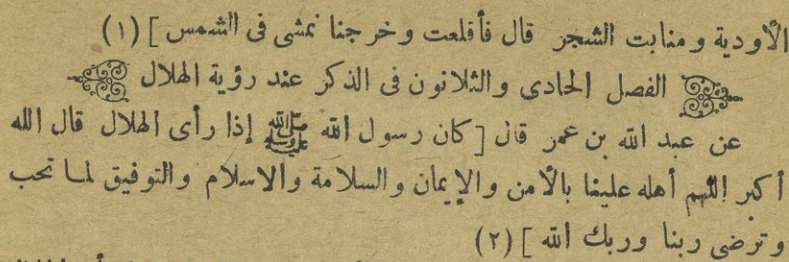 الأودية ومنابت الشجر قال فأقلعت وخرجنا نمشى فى الشمس ] (١)
الفصل الحادى والثلاثون فى الذكر عند رؤية الهلال
عن عبد الله بن عمر قال [ كان رسول الله ﷺ إذا رأى الهلال قال الله
أكبر اللهم أهله علينا بالأمن والإيمان والسلامة والاسلام والتوفيق لما تحب
وترضى ربنا وربك الله ] (٢)